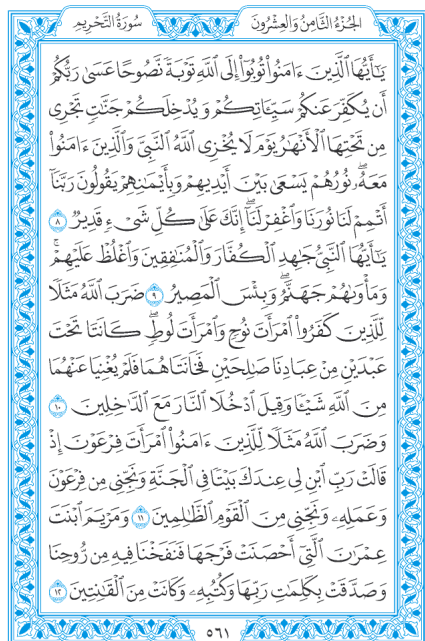 الجُزْءُ الثَّامِنُ وَالعِشْرُونَ سُورَةُ التَّحْرِيمِ
يَٰٓأَيُّهَا ٱلَّذِينَ ءَامَنُوا۟ تُوبُوٓا۟ إِلَى ٱللَّهِ تَوْبَةً نَّصُوحًا عَسَىٰ رَبُّكُمْ
أَن يُكَفِّرَ عَنكُمْ سَيِّـَٔاتِكُمْ وَيُدْخِلَكُمْ جَنَّٰتٍ تَجْرِى
مِن تَحْتِهَا ٱلْأَنْهَٰرُ يَوْمَ لَا يُخْزِى ٱللَّهُ ٱلنَّبِىَّ وَٱلَّذِينَ ءَامَنُوا۟
مَعَهُۥۖ نُورُهُمْ يَسْعَىٰ بَيْنَ أَيْدِيهِمْ وَبِأَيْمَٰنِهِمْ يَقُولُونَ رَبَّنَآ
أَتْمِمْ لَنَا نُورَنَا وَٱغْفِرْ لَنَآۖ إِنَّكَ عَلَىٰ كُلِّ شَىْءٍ قَدِيرٌ ٨
يَٰٓأَيُّهَا ٱلنَّبِىُّ جَٰهِدِ ٱلْكُفَّارَ وَٱلْمُنَٰفِقِينَ وَٱغْلُظْ عَلَيْهِمْۚ
وَمَأْوَىٰهُمْ جَهَنَّمُۖ وَبِئْسَ ٱلْمَصِيرُ ٩ ضَرَبَ ٱللَّهُ مَثَلًا
لِّلَّذِينَ كَفَرُوا۟ ٱمْرَأَتَ نُوحٍ وَٱمْرَأَتَ لُوطٍۖ كَانَتَا تَحْتَ
عَبْدَيْنِ مِنْ عِبَادِنَا صَٰلِحَيْنِ فَخَانَتَاهُمَا فَلَمْ يُغْنِيَا عَنْهُمَا
مِنَ ٱللَّهِ شَيْـًٔا وَقِيلَ ٱدْخُلَا ٱلنَّارَ مَعَ ٱلدَّٰخِلِينَ ١٠
وَضَرَبَ ٱللَّهُ مَثَلًا لِّلَّذِينَ ءَامَنُوا۟ ٱمْرَأَتَ فِرْعَوْنَ إِذْ
قَالَتْ رَبِّ ٱبْنِ لِى عِندَكَ بَيْتًا فِى ٱلْجَنَّةِ وَنَجِّنِى مِن فِرْعَوْنَ
وَعَمَلِهِۦ وَنَجِّنِى مِنَ ٱلْقَوْمِ ٱلظَّٰلِمِينَ ١١ وَمَرْيَمَ ٱبْنَتَ
عِمْرَٰنَ ٱلَّتِىٓ أَحْصَنَتْ فَرْجَهَا فَنَفَخْنَا فِيهِ مِن رُّوحِنَا
وَصَدَّقَتْ بِكَلِمَٰتِ رَبِّهَا وَكُتُبِهِۦ وَكَانَتْ مِنَ ٱلْقَٰنِتِينَ ١٢
٥٦١